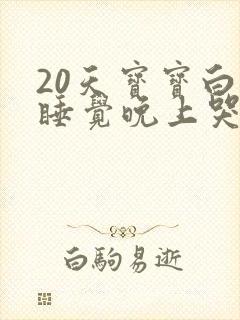 20天寶寶白
睡覺晚上哭
白駒易逝